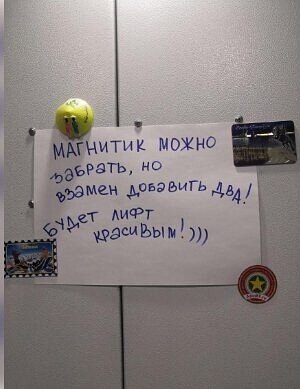 МАГНИТИК МОЖНО
ЗАБРАТЬ, НО
ВЗАМЕН ДОБАВИТЬ ДВА!
БУДЕТ ЛИФТ
КРАСИВЫМ!)))